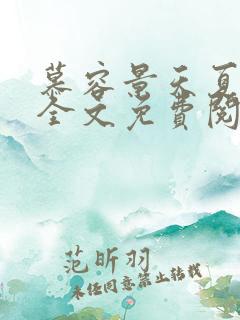 慕容景天夏
全文免费阅
范昕羽
未经同意禁止转载